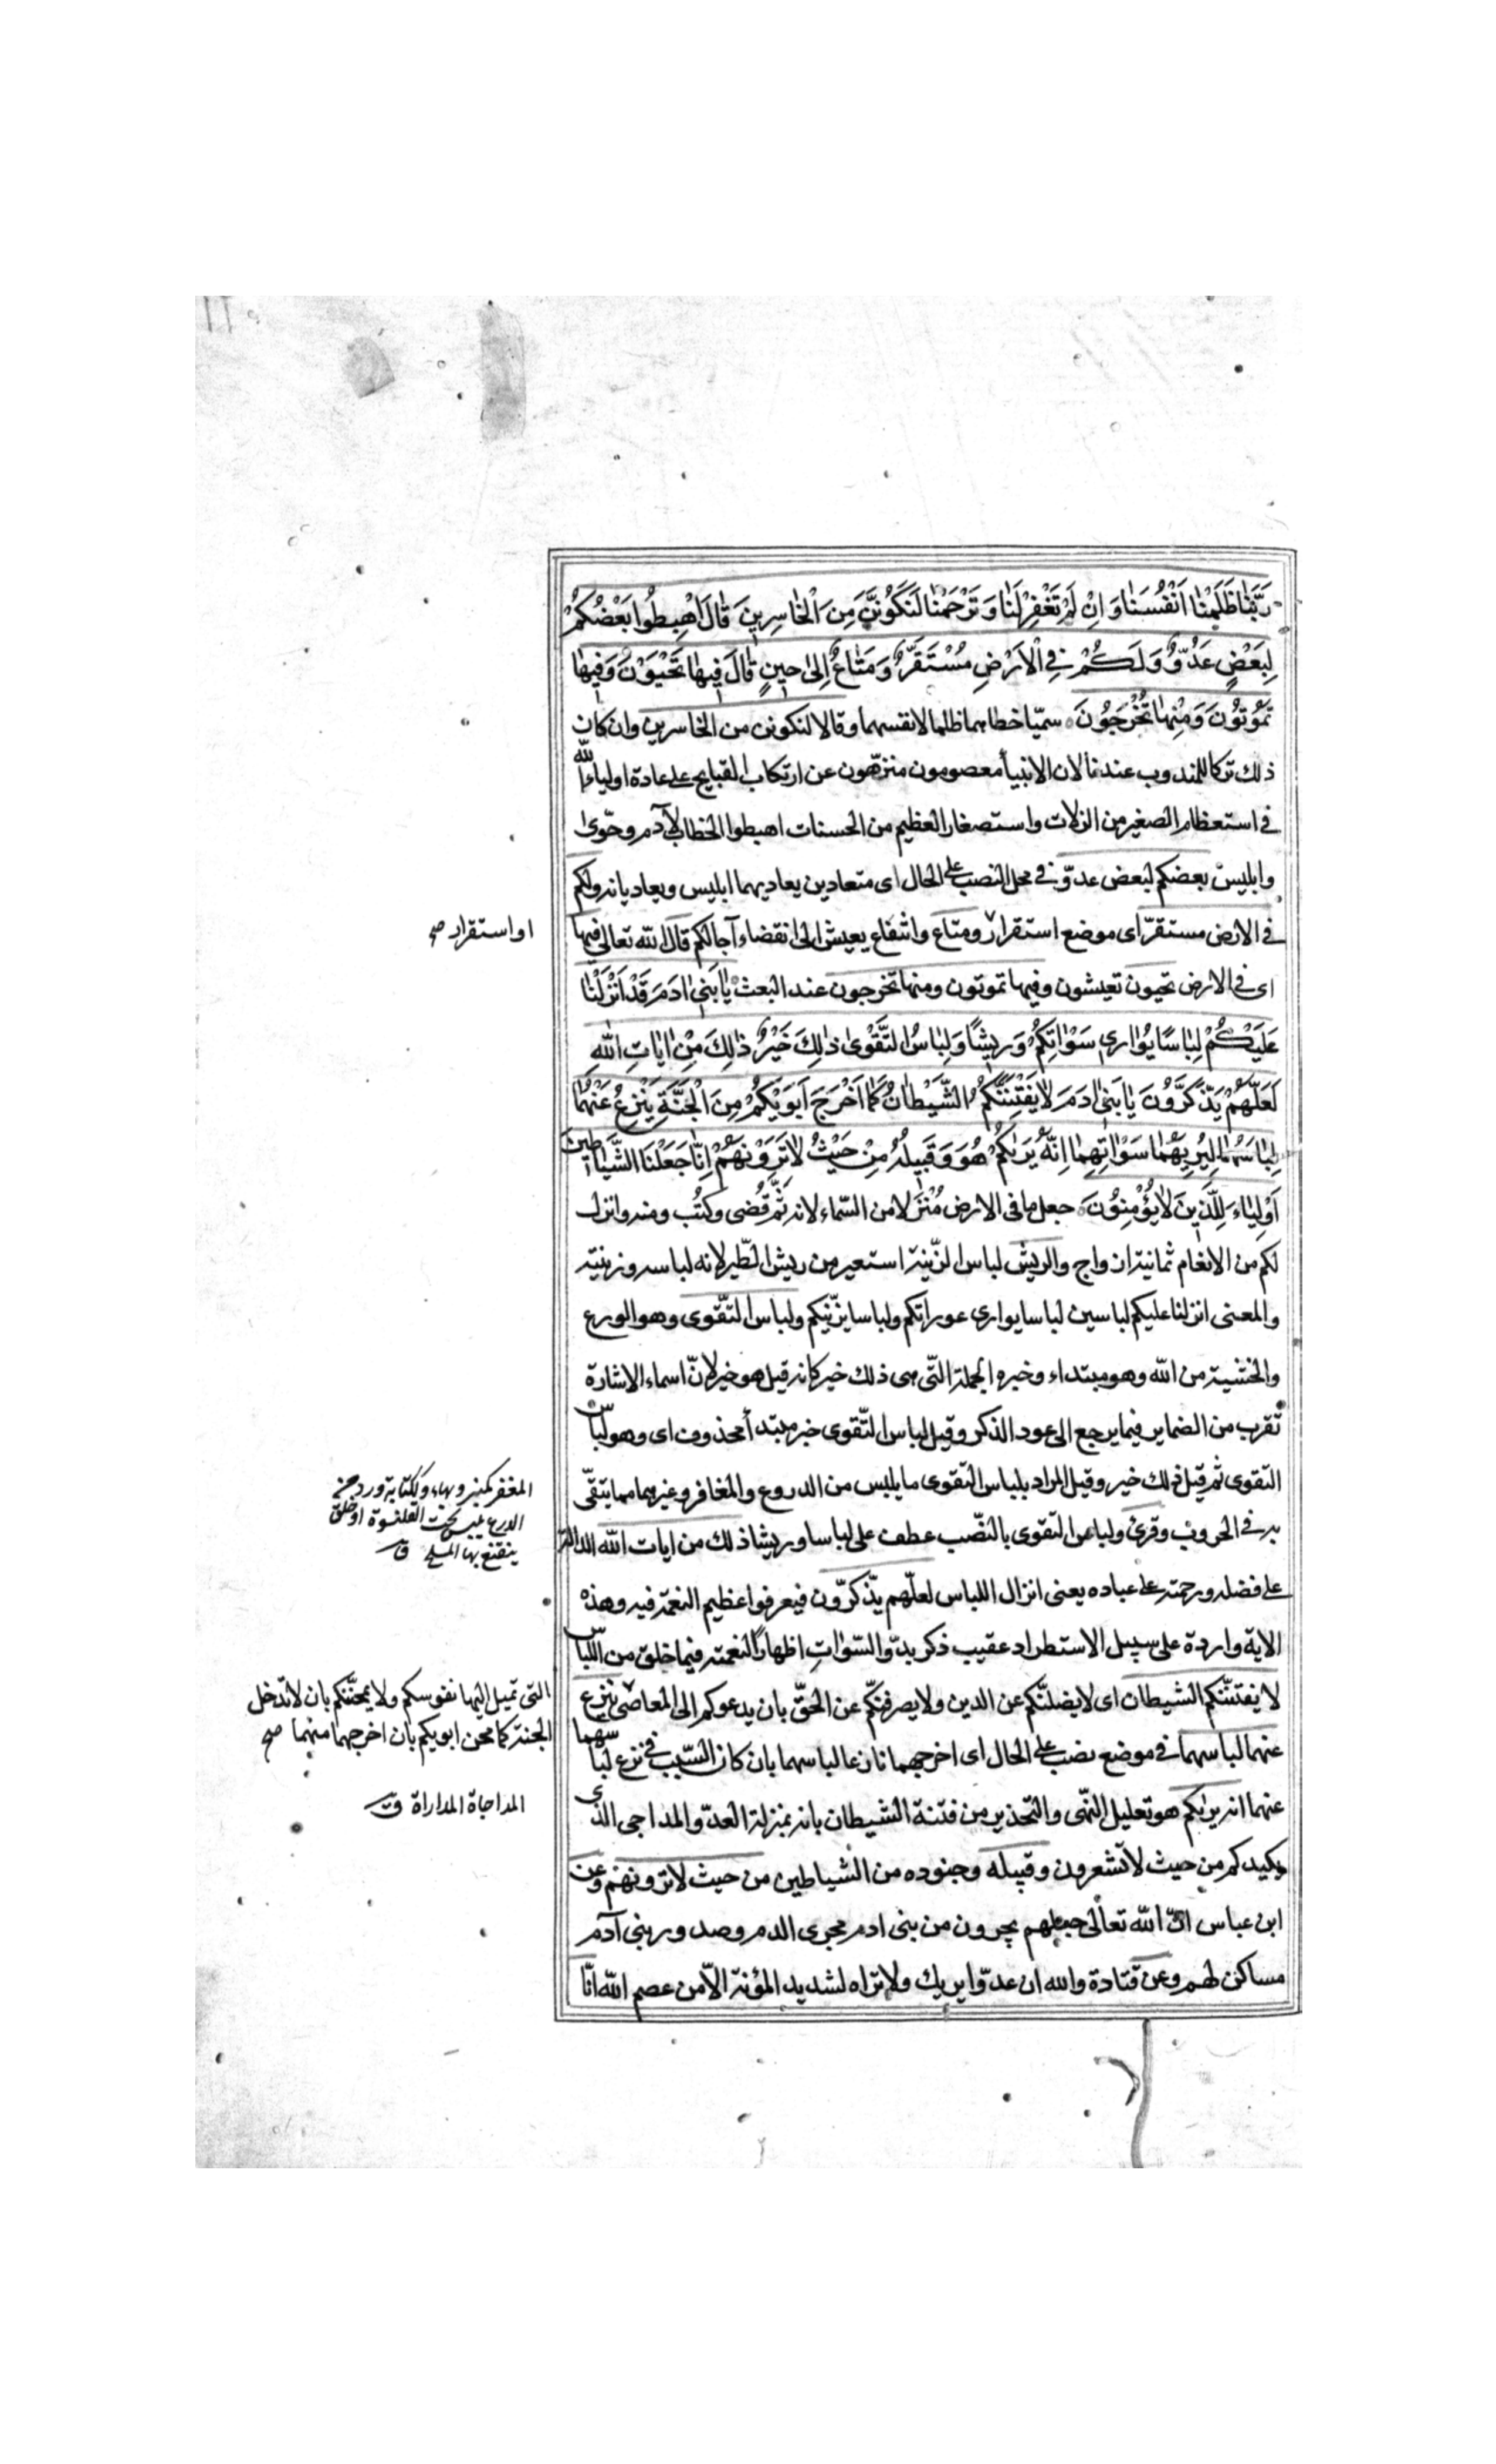 رَبَّنٰا ظَلَمْنٰا اَنْفُسَنٰا وَ اِنْ لَمْ تَغْفِرْ لَنٰا وَ تَرْحَمْنٰا لَنَكُونَنَّ مِنَ الْخٰاسِرِينَ قٰالَ اهْبِطُوا بَعْضُكُمْ
لِبَعْضٍ عَدُوٌّ وَ لَكُمْ فِي الْاَرْضِ مُسْتَقَرٌّ وَ مَتٰاعٌ اِلىٰ حِينٍ قٰالَ فِيهٰا تَحْيَوْنَ وَ فِيهٰا
تَمُوتُونَ وَ مِنْهٰا تُخْرَجُونَ سمّيا خطاهما ظلما لانفسهما وقالا لنكونن من الخاسرين وان كان
ذلك تركا للمندوب عندنا لان الانبيأ معصومون منزّهون عن ارتكاب القبايح على عادة اولياء الله
في استعظام الصغير من الزلات واستصغار العظيم من الحسنات اهبطوا الخطاب لآدم وحوّى
وابليس بعضكم لبعض عدوّ في محل النصب على الحال اى متعادين يعاديهما ابليس ويعاديانه ولكم
في الارض مستقرّ اى موضع استقرار ومتاع وانتفاع يعيش الى انقضاء آجالكم قال الله تعالى فيها
اى في الارض تحيون تعيشون وفيها تموتون ومنها تخرجون عند البعث يٰا بَنِي اٰدَمَ قَدْ اَنْزَلْنٰا
عَلَيْكُمْ لِبٰاسًا يُوٰارِي سَوْاٰتِكُمْ وَ رِيشًا وَ لِبٰاسُ التَّقْوىٰ ذٰلِكَ خَيْرٌ ذٰلِكَ مِنْ اٰيٰاتِ اللّٰهِ
لَعَلَّهُمْ يَذَّكَّرُونَ يٰا بَنِي اٰدَمَ لاٰ يَفْتِنَنَّكُمُ الشَّيْطٰانُ كَمٰا اَخْرَجَ اَبَوَيْكُمْ مِنَ الْجَنَّةِ يَنْزِعُ عَنْهُمٰا
لِبٰاسَهُمٰا لِيُرِيَهُمٰا سَوْاٰتِهِمٰا اِنَّهُ يَرٰىكُمْ هُوَ وَ قَبِيلُهُ مِنْ حَيْثُ لاٰ تَرَوْنَهُمْ اِنّٰا جَعَلْنَا الشَّيٰاطِينَ
اَوْلِيٰاءَ لِلَّذِينَ لاٰ يُؤْمِنُونَ جعل ما في الارض مُنْزَلا من السّماء لانه ثَمَّ قُضى وكُتُب ومنه وانزل
لكم من الانعام ثمانية ازواج والريش لباس الزّينة استعير من ريش الطّير لانه لباسه وزينته
والمعنى انزلنا عليكم لباسين لباسا يوارى عوراتكم ولباسا يزّينكم ولباس التّقوى وهو الورع
والخشية من الله وهو مبتداء وخبره الجملة التّى هى ذلك خير كانه قيل هو خير لانّ اسماء الاشارة
تقرب من الضماير فيما يرجع الى عود الذكر وقيل لباس التّقوى خبر مبتدأ محذوف اى وهو لباس
التقوى ثم قيل ذلك خير وقيل المراد بلباس التقوى ما يلبس من الدروع والمغافر وغيرهما مما يتقّى
به في الحروب وقرئ ولباس التقوى بالنصّب عطف على لباسا وريشا ذلك من ايات الله الدالة
على فضله ورحمته على عباده يعنى انزال اللباس لعلّهم يذّكرّون فيعرفوا عظيم النعمة فيه وهذه
الاية واردة على سبيل الاستطراد عقيب ذكر بدوّ السّوٰاتِ اظهارًا لنعمته فيما خلق من اللباس
لا يفتننّكم الشيطان اى لا يضلنّكم عن الدين ولا يصرفنكّم عن الحقّ بان يدعوكم الى المعاصى ينزع
عنهما لباسهما في موضع نصب على الحال اى اخرجهما نازعا لباسهما بان كان السّبب في نزع لباسهما
عنهما انه يرٰىكم هو تعليل للنّهى والتّحذير من فتنة الشيطان بانه بمنزلة العدّو المداجى الذى
يكيدكم من حيث لا تشعرون وقبيله وجنوده من الشياطين من حيث لا ترونهم وعن
ابن عباس انّ الله تعالى جعلهم يجرون من بنى ادم مجرى الدم وصدور بنى آدم
مساكن لهم وعن قتادة والله ان عدوّا يريك ولا تراه لشديد المؤنة الاّ من عصم الله انّا
او استقرار صح
المغفر كمنبر وبهاء وككتابة زرد من
الدرع يلبس تحت القلنسوة او حلق
يتقنع بها المسلح ق
التى تميل اليها نفوسكم ولا يمحننّكم بان لا تدخل
الجنة كما محن ابويكم بان اخرجهما منهما صح
المداجاة المداراة ق